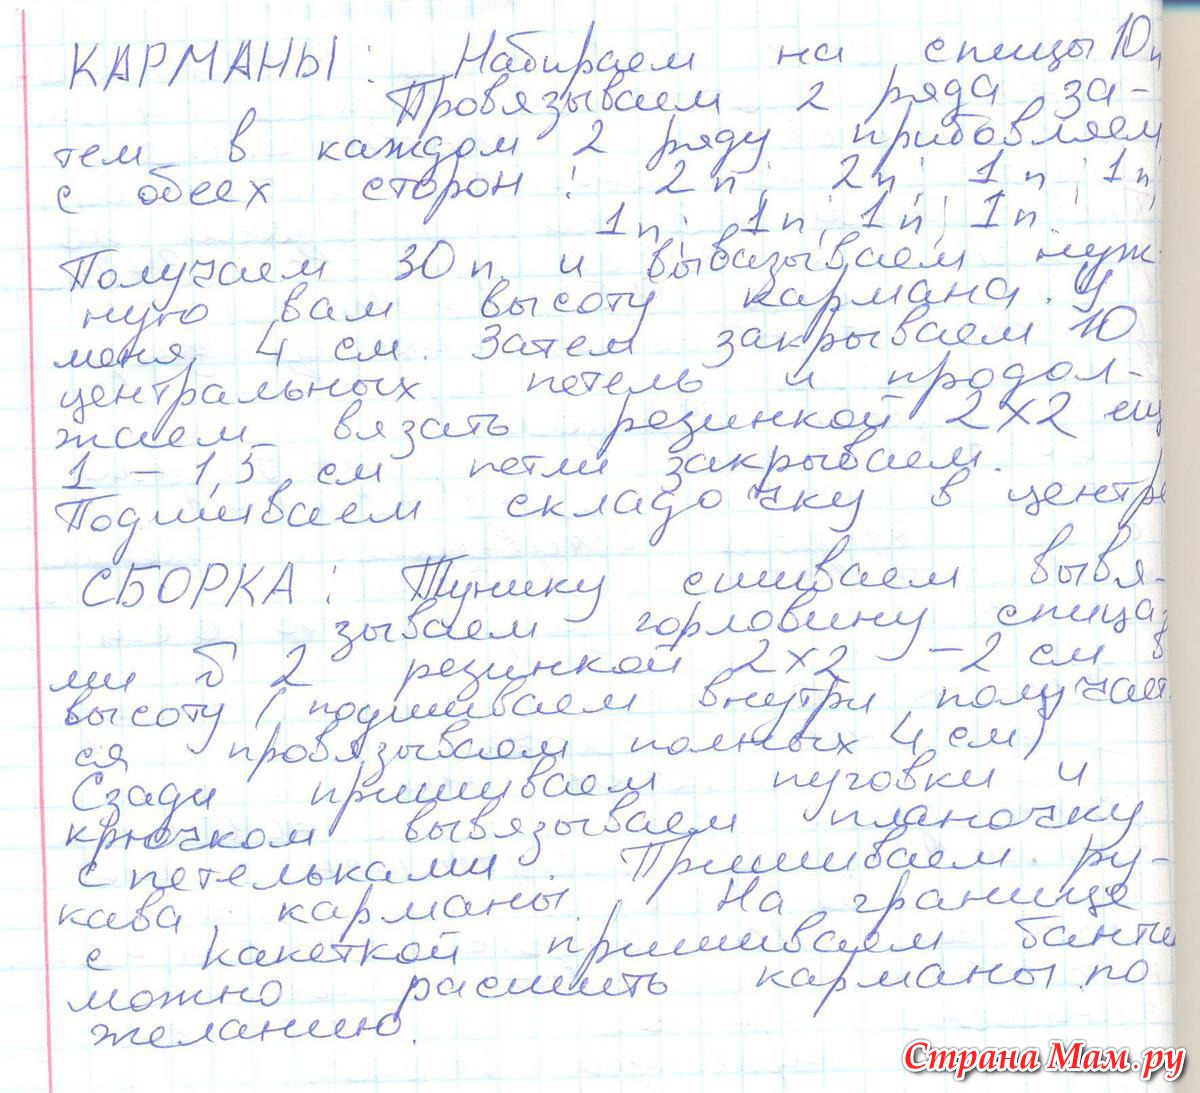 КАРМАНЫ: Набираем на спицы 10п
Провязываем 2 ряда за-
тем в каждом 2 ряду прибовляем
с обеех сторон: 2п; 2п; 1п; 1п;
1п; 1п; 1п; 1п.
Получаем 30п. и вывазываем нуж-
ную вам высоту кармана. У
меня 4 см. Затем закрываем 10
центральных петель и продол-
жаем вязать резинкой 2х2 ещ
1 – 1,5 см петли закрываем.
Подшиваем складочку в центре
СБОРКА: Тунику сшиваем вывя-
зываем горловину спица-
ми б 2 резинкой 2х2 – 2 см в
высоту (подшиваем внутри получает
ся провязываем полных 4 см)
Сзади пришиваем пуговки и
крючком вывязываем планочку
с петельками. Пришиваем ру-
кава, карманы. На границе
с какеткой пришиваем банти
можно расшить карманы по
желанию.
Страна Мам.ру